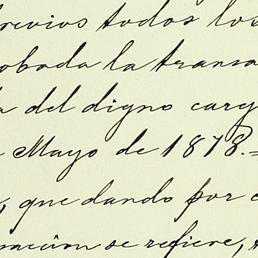 previos todos los
robada la transa
a del digno carg
Mayo de 1878.=
, que dando por c
pación se refiere,